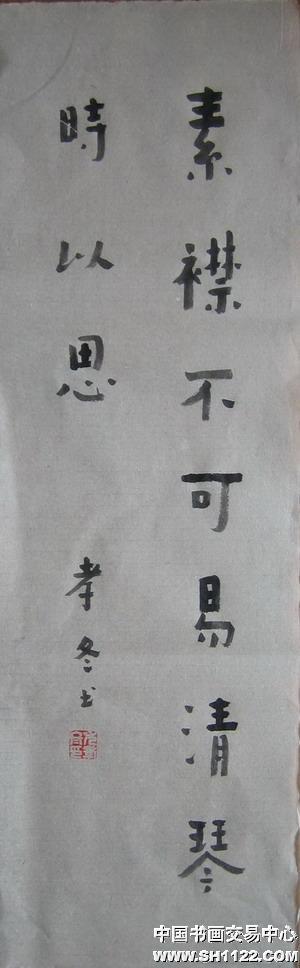 素襟不可易清琴
時以思
孝冬书
中国书画交易中心
www.SH1122.com